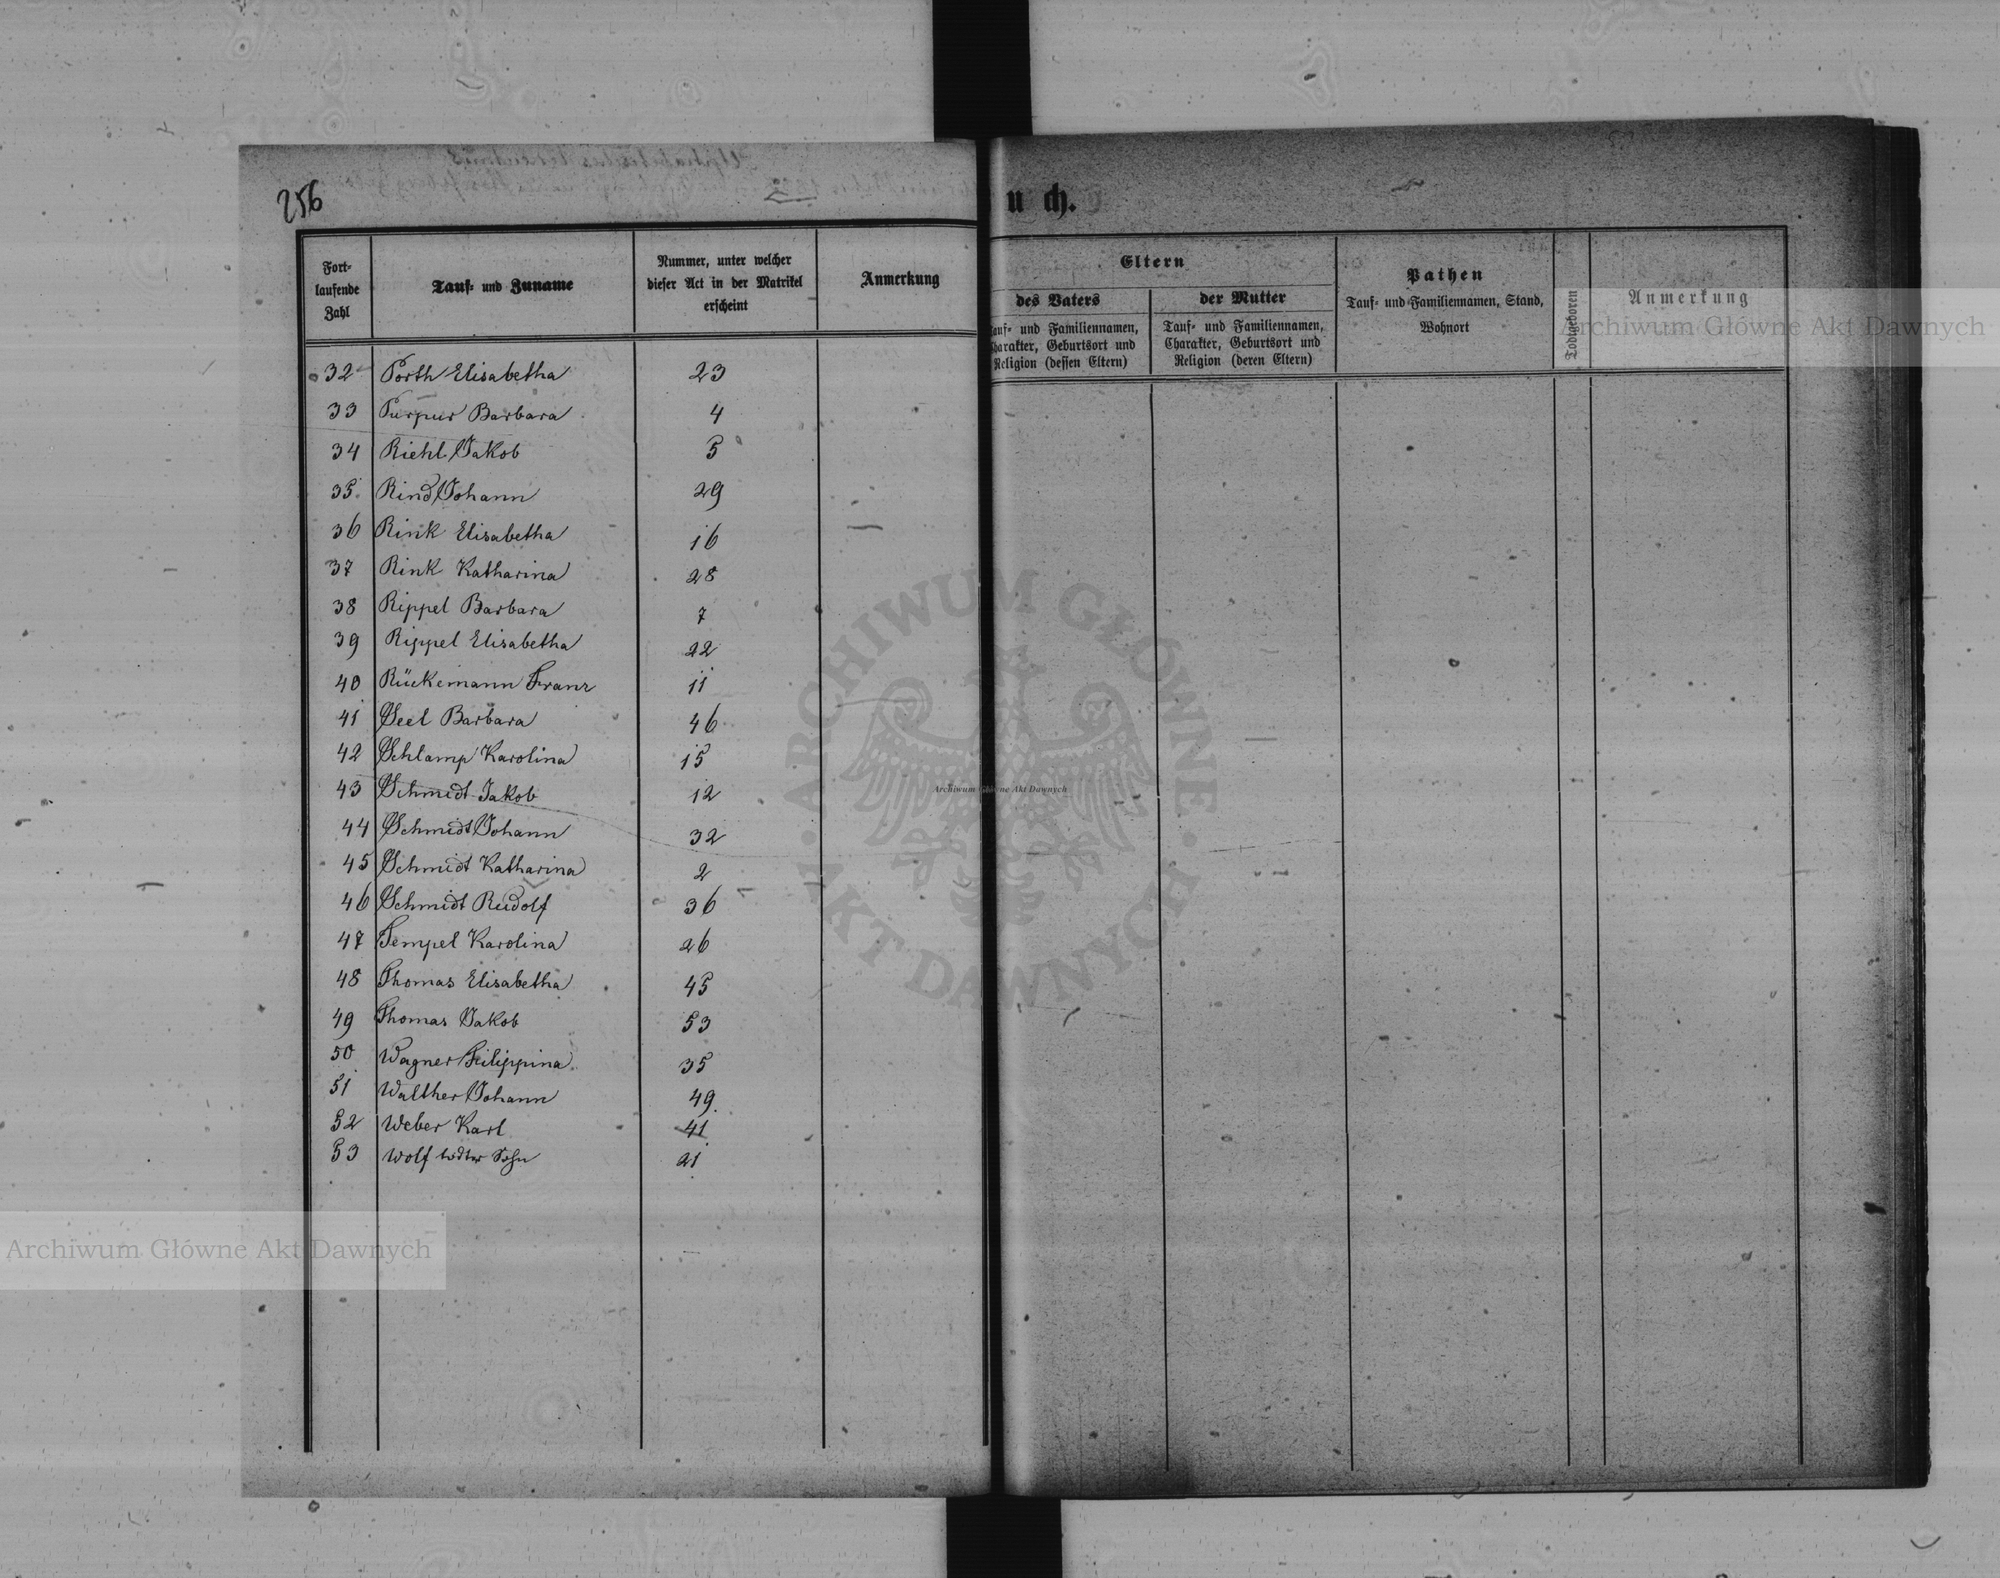 256
u ch.
Fort-
laufende
Zahl
Tauf- und Zuname
Nummer, unter welcher
dieser Act in der Matrikel
erscheint
Anmerkung
32 Porth Elisabetha 23
33 Purpur Barbara 4
34 Riehl Jakob 5
35 Rind Johann 29
36 Rink Elisabetha 16
37 Rink Katharina 28
38 Rippel Barbara 7
39 Rippel Elisabetha 22
40 Rückemann Franz 11
41 Seel Barbara 46
42 Schlamp Karolina 15
43 Schmidt Jakob 12
44 Schmidt Johann 32
45 Schmidt Katharina 2
46 Schmidt Rudolf 36
47 Tempel Karolina 26
48 Thomas Elisabetha 45
49 Thomas Jakob 53
50 Wagner Filippina 35
51 Walther Johann 49
52 Weber Karl 41
53 Wolf todter Sohn 21
Eltern
des Vaters
Tauf- und Familiennamen,
Charakter, Geburtsort und
Religion (dessen Eltern)
der Mutter
Tauf- und Familiennamen,
Charakter, Geburtsort und
Religion (deren Eltern)
Pathen
Tauf- und Familiennamen, Stand,
Wohnort
Todtgeboren
Anmerkung
Archiwum Główne Akt Dawnych
ARCHIWUM GŁÓWNE
AKT DAWNYCH
Archiwum Główne Akt Dawnych
Archiwum Główne Akt Dawnych